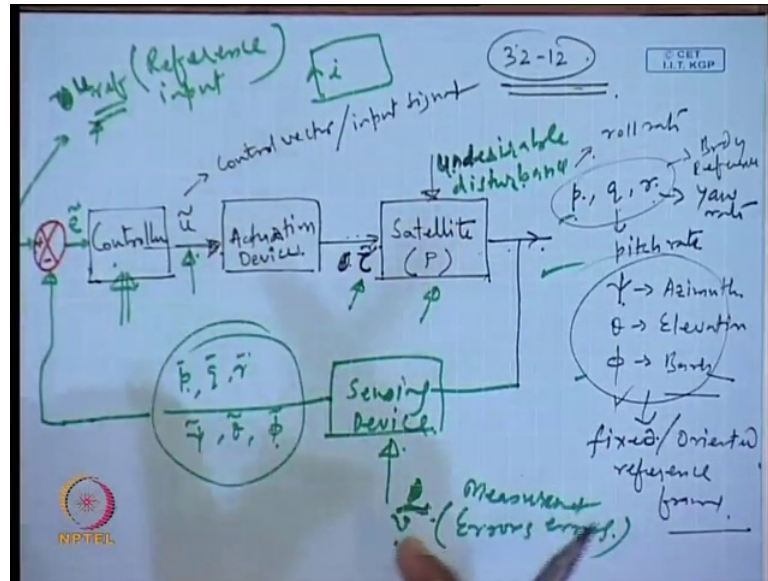 u_ref (Reference input)
i
32-12
© CET
I.I.T. KGP
Control vector / input signal
undesirable
disturbance
roll rate
p, q, r
Body
Reference
Yaw
rate
pitch rate
ẽ
Controller
ũ
Actuation
Device
τ̃
Satellite
(P)
ψ → Azimuth
θ → Elevation
ϕ → Bank
fixed/Oriented
reference
frame.
p̄, q̄, r̄
ψ̃, θ̃, ϕ̃
Sensing
Device.
v (Measurement
Errors errors.)
NPTEL